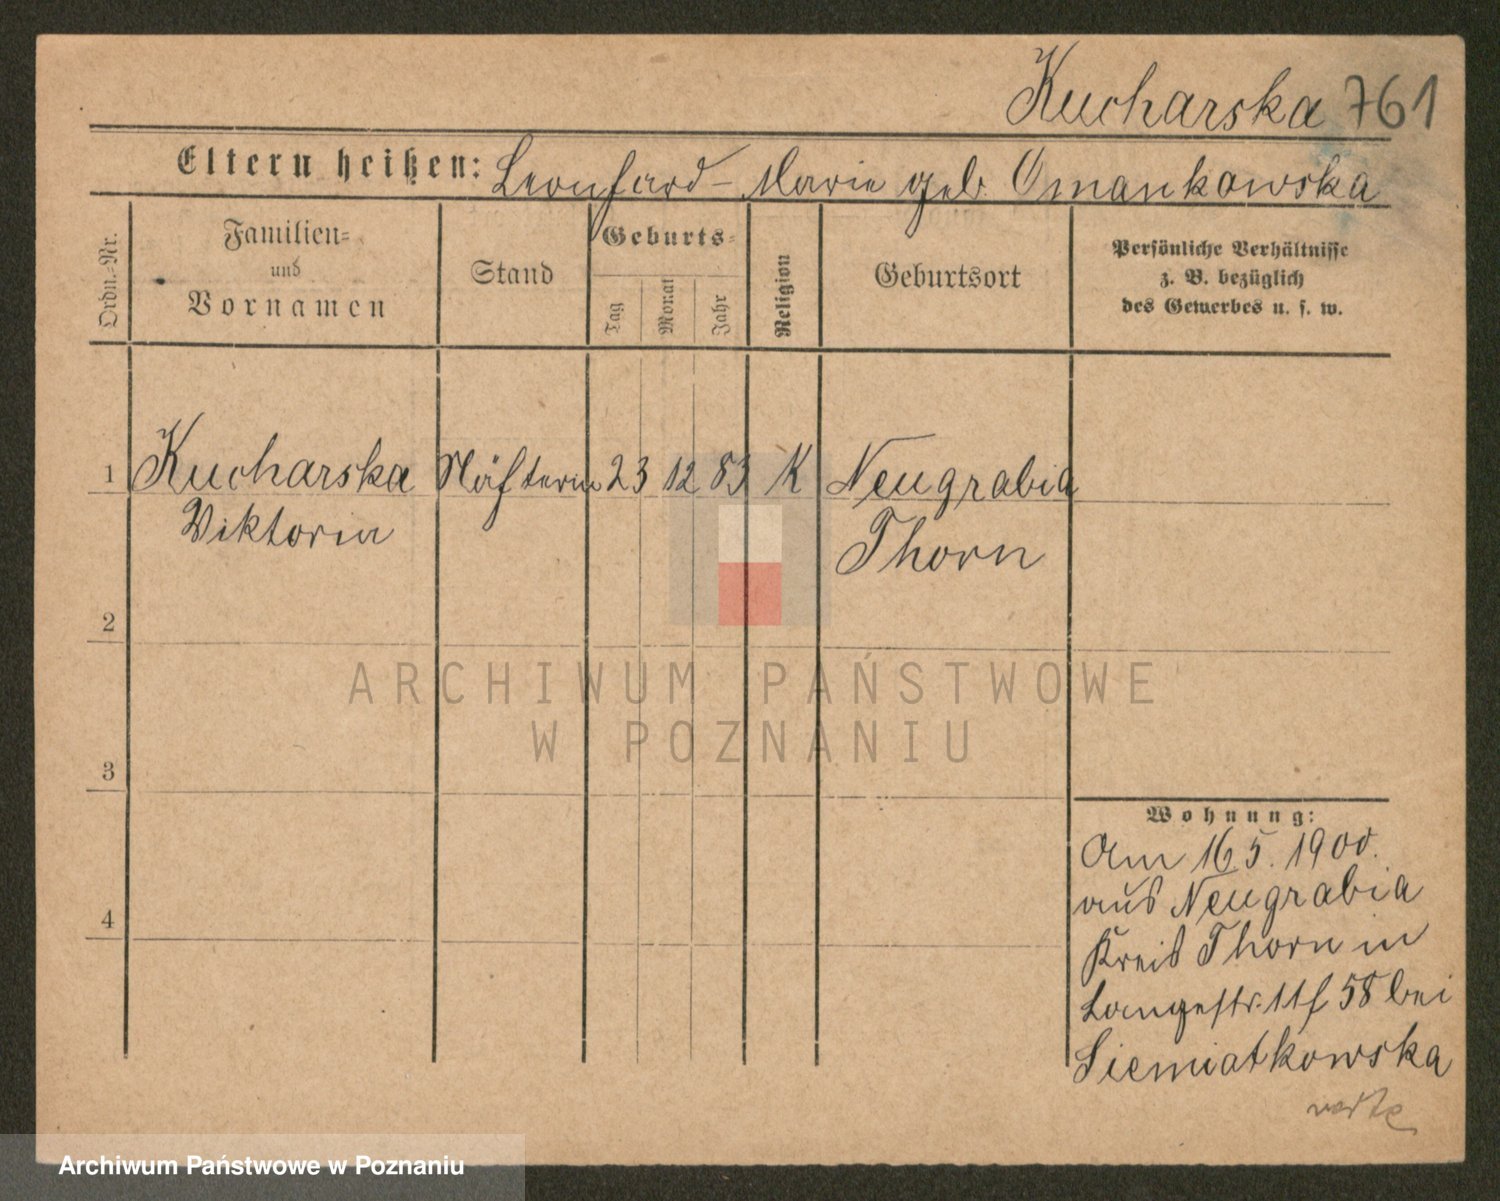 Kucharska 761
Eltern heißen: Leonhard – Marie geb. Omankowska
Ordn.-Nr.
Familien- und Vornamen
Stand
Geburts-
Tag
Monat
Jahr
Religion
Geburtsort
Persönliche Verhältnisse
z. B. bezüglich
des Gewerbes u. s. w.
1 Kucharska Näfterin 23 12 83 K Neugrabia
Viktoria Thorn
2
3
4
ARCHIWUM PAŃSTWOWE
W POZNANIU
Wohnung:
Am 16 5. 1900.
aus Neugrabia
Kreis Thorn in
Langestr. 11f 58 bei
Siemiatkowska
verte
Archiwum Państwowe w Poznaniu